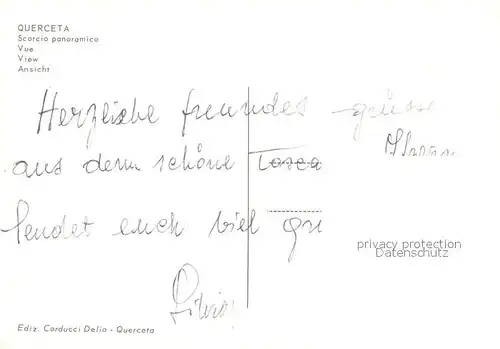 QUERCETA
Scorcio panoramico
Vue
View
Ansicht
Herzliche freundes grüsse
aus dem schöne Tosca
sendet euch viel grü
Silvia
privacy protection
Datenschutz
Ediz. Carducci Delio - Querceta